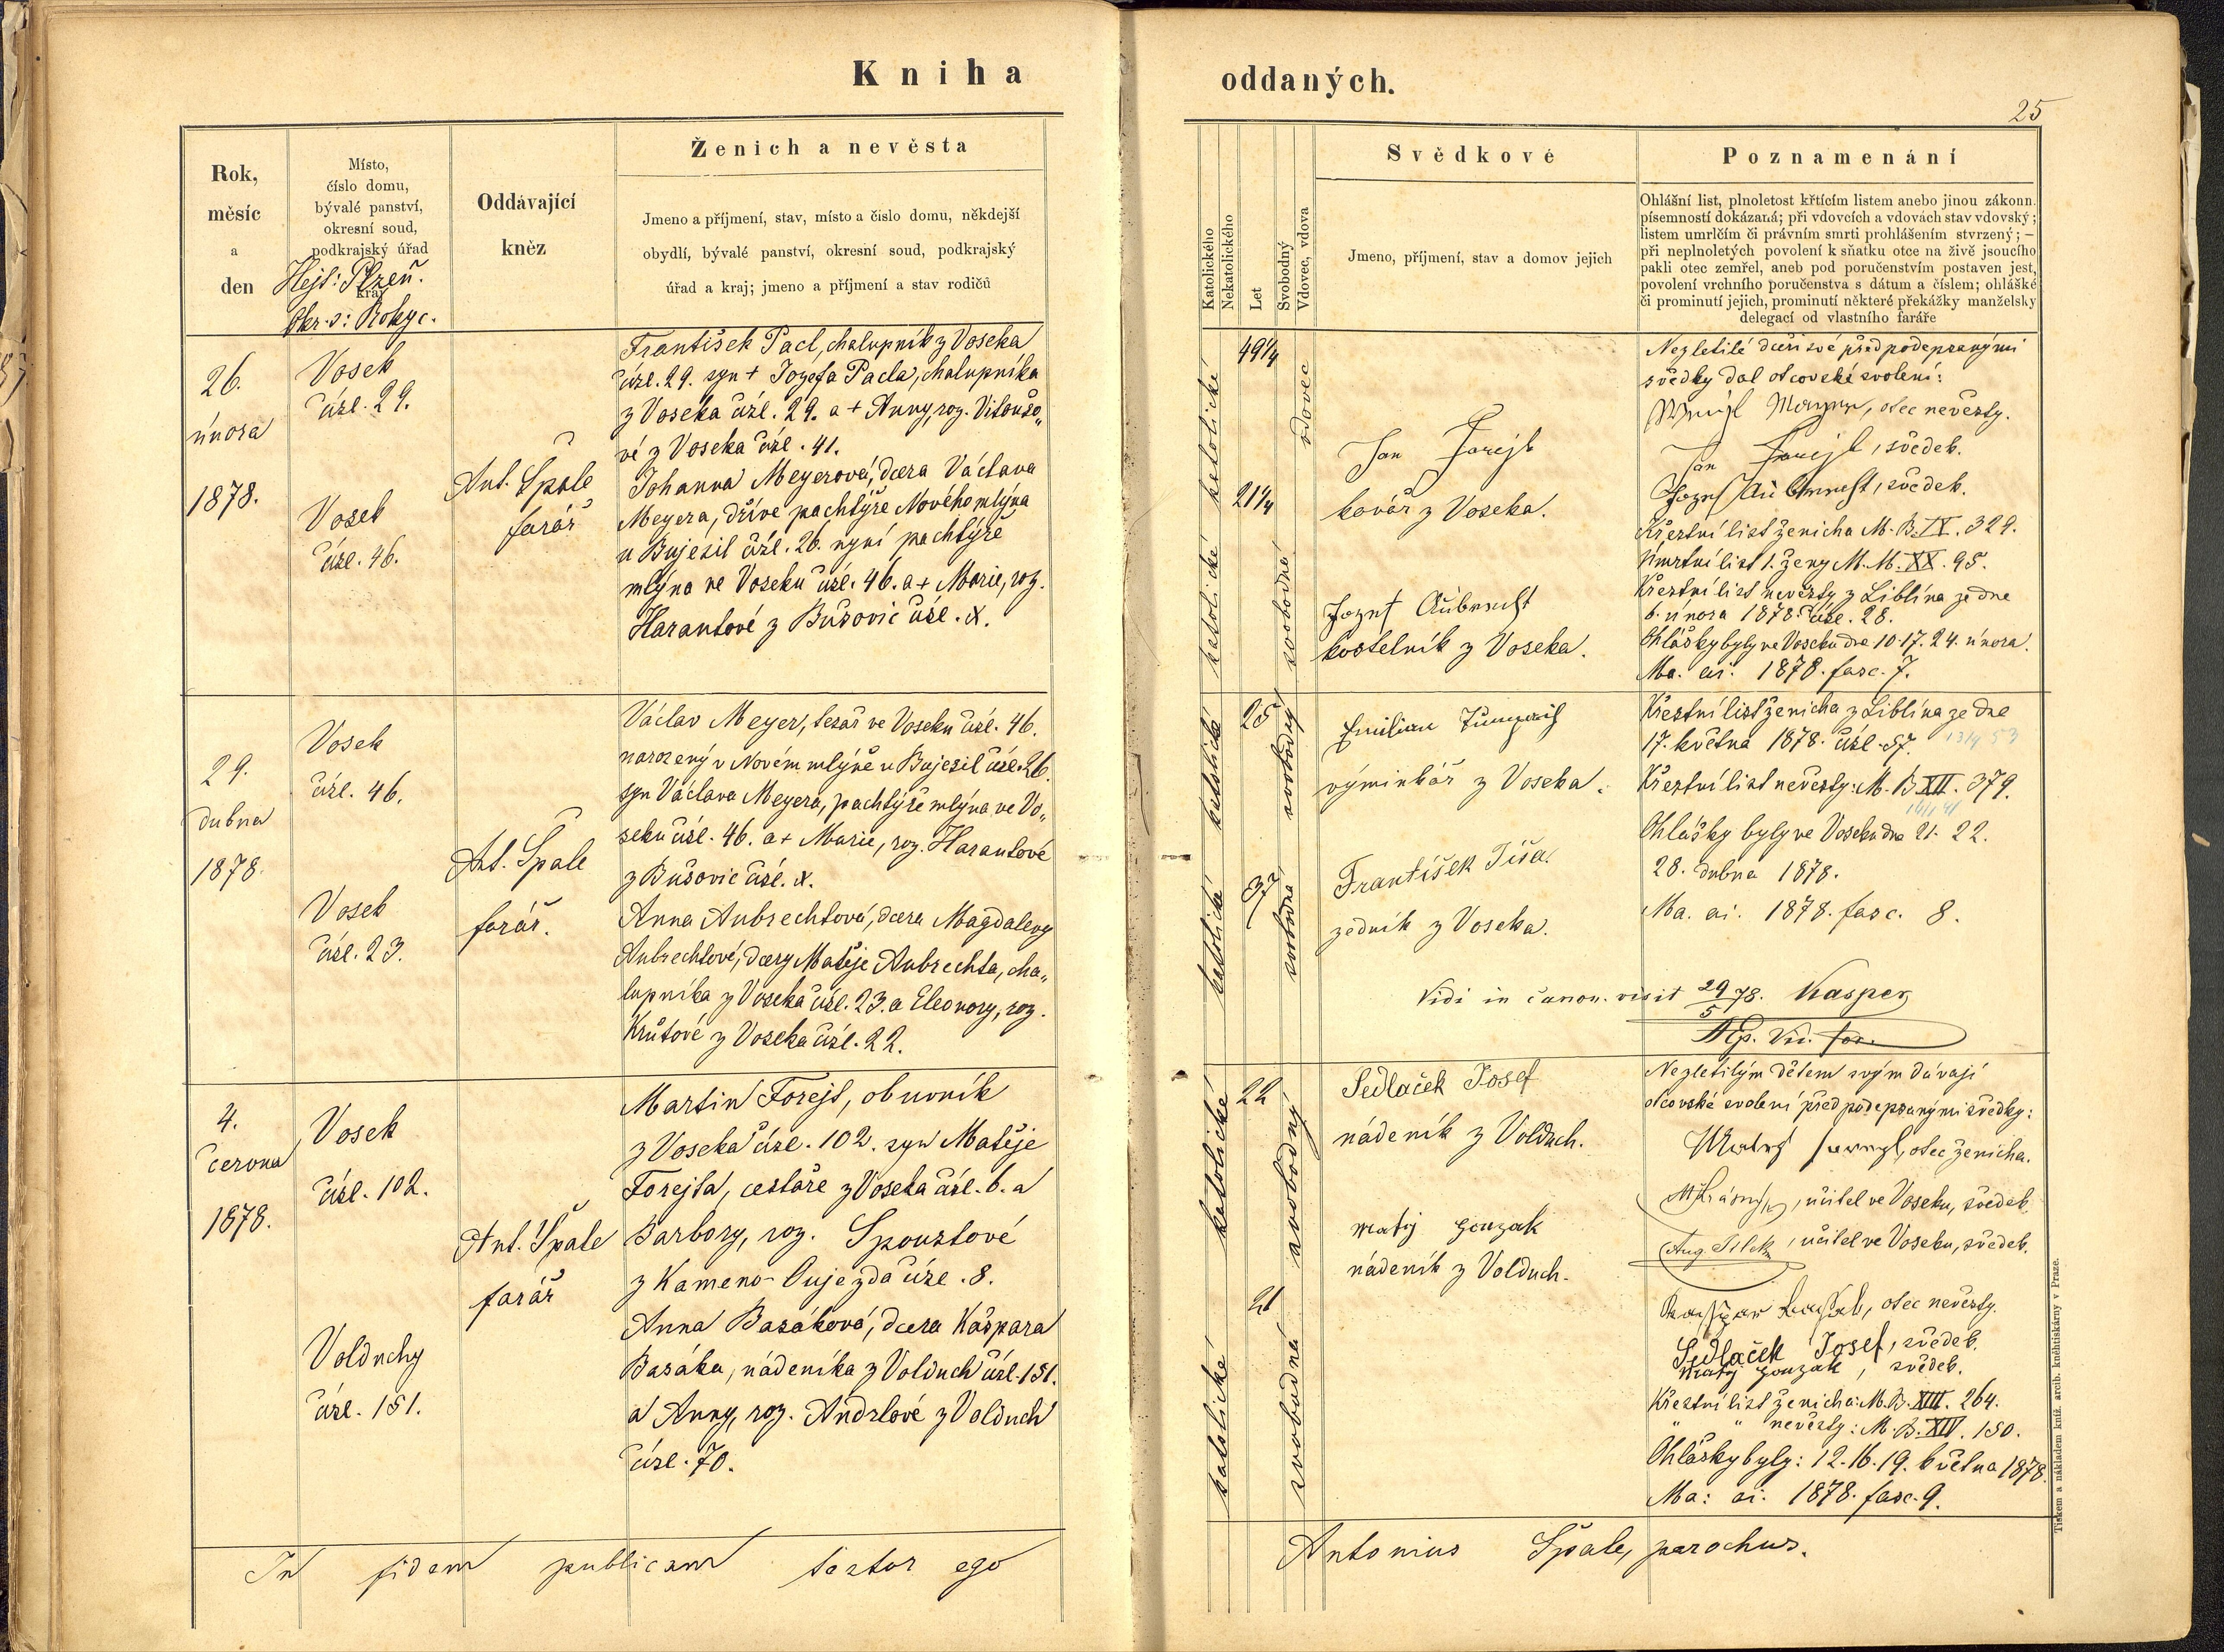 Kniha
oddaných.
25
Rok,
měsíc
a
den
Místo,
číslo domu,
bývalé panství,
okresní soud,
podkrajský úřad
kraj
Hejt: Plzeň.
Okr. s: Rokyc.
Oddávající
kněz
Ženich a nevěsta
Jmeno a příjmení, stav, místo a číslo domu, někdejší
obydlí, bývalé panství, okresní soud, podkrajský
úřad a kraj; jmeno a příjmení a stav rodičů
Katolického
Nekatolického
Let
Svobodný
Vdovec, vdova
Svědkové
Jmeno, příjmení, stav a domov jejich
Poznamenání
Ohlášní list, plnoletost křtícím listem anebo jinou zákonn.
písemností dokázaná; při vdovcích a vdovách stav vdovský;
listem umrlčím či právním smrti prohlášením stvrzený; —
při neplnoletých povolení k sňatku otce na živě jsoucího
pakli otec zemřel, aneb pod poručenstvím postaven jest,
povolení vrchního poručenstva s dátum a číslem; ohlášké
či prominutí jejich, prominutí některé překážky manželsky
delegací od vlastního faráře
26.
února
1878.
Vosek
čísl. 29.
Vosek
čísl. 46.
Ant. Špale
farář
František Pacl, chalupník z Voseka
čísl. 29. syn + Jozefa Pacla, chalupníka
z Voseka čísl. 29. a + Anny, roz. Vitoušo„
vé z Voseka čísl. 41.
Johanna Meyerová, dcera Václava
Meyera, dříve pachtýře Nového mlýna
u Bujesil čísl. 26. nyní pachtýře
mlýna ve Voseku čísl. 46. a + Marie, roz.
Harantové z Bušovic čísl. X.
katolické
katolické
49¼
21¼
vdovec
svobodná
Jan Forejt
kovář z Voseka.
Jozef Aubrecht
kostelník z Voseka.
Nezletilé dceři své před podepsanými
svědky dal otcovské svolení:
Meyer, otec nevěsty.
Jan Forejt, svědek.
Jozef Aubrecht, svědek.
Křestní list ženicha M. B. IX. 329.
Úmrtní list 1. ženy M. M. XX. 95.
Křestní list nevěsty z Liblína ze dne
6. února 1878. čísl. 28.
Ohlášky byly ve Voseku dne 10. 17. 24. února.
Ma. ai. 1878. fasc. 7.
29.
dubna
1878.
Vosek
čísl. 46.
Vosek
čísl. 23.
Ant. Špale
farář.
Václav Meyer, tesař ve Voseku čísl. 46.
narozený v Novém mlýně u Bujesil čísl. 26.
syn Václava Meyera, pachtýře mlýna ve Vo„
seku čísl. 46. a + Marie, roz. Harantové
z Bušovic čísl. X.
Anna Aubrechtová, dcera Magdaleny
Aubrechtové, dcery Matěje Aubrechta, cha„
lupníka z Voseka čísl. 23. a Eleonory, roz.
Krůtové z Voseka čísl. 22.
katolické
katolické
25
37
svobodný
svobodná
Emilian
výminkář z Voseka.
František Tiša.
zedník z Voseka.
Křestní list ženicha z Liblína ze dne
17. května 1878. čísl. 57.
Křestní list nevěsty: M. B. XII. 379.
Ohlášky byly ve Voseku dne 21. 22.
28. dubna 1878.
Ma. ai. 1878. fasc. 8.
Vidi in canon. visit 29/5 78. Kasper
Ep. Vic. for.
4.
června
1878.
Vosek
čísl. 102.
Volduchy
čísl. 151.
Ant. Špale
farář
Martin Forejt, obuvník
z Voseka čísl. 102. syn Matěje
Forejta, cestáře z Voseka čísl. 6. a
Barbory, roz. Spoustové
z Kameno-Oujezda čísl. 8.
Anna Basáková, dcera Kašpara
Basáka, nádeníka z Volduch čísl. 151.
a Anny, roz. Andrlové z Volduch
čísl. 70.
katolické
katolické
22
21
svobodný
svobodná
Sedlaček Josef
nádeník z Volduch.
Matěj
nádeník z Volduch.
Nezletilým dětem svým dávají
otcovské svolení před podepsanými svědky:
Matěj Forejt, otec ženicha.
, učitel ve Voseku, svědek.
Aug. , učitel ve Voseku, svědek.
, otec nevěsty.
Sedlaček Josef, svědek.
Matěj , svědek.
Křestní list ženicha: M. B. XIII. 264.
" " nevěsty: M. B. XIV. 150.
Ohlášky byly: 12. 16. 19. května 1878.
Ma: ai: 1878. fasc. 9.
In fidem publicam testor ego
Antonius Špale, parochus.
Tiskem a nákladem kníž. arcib. kněhtiskárny v Praze.